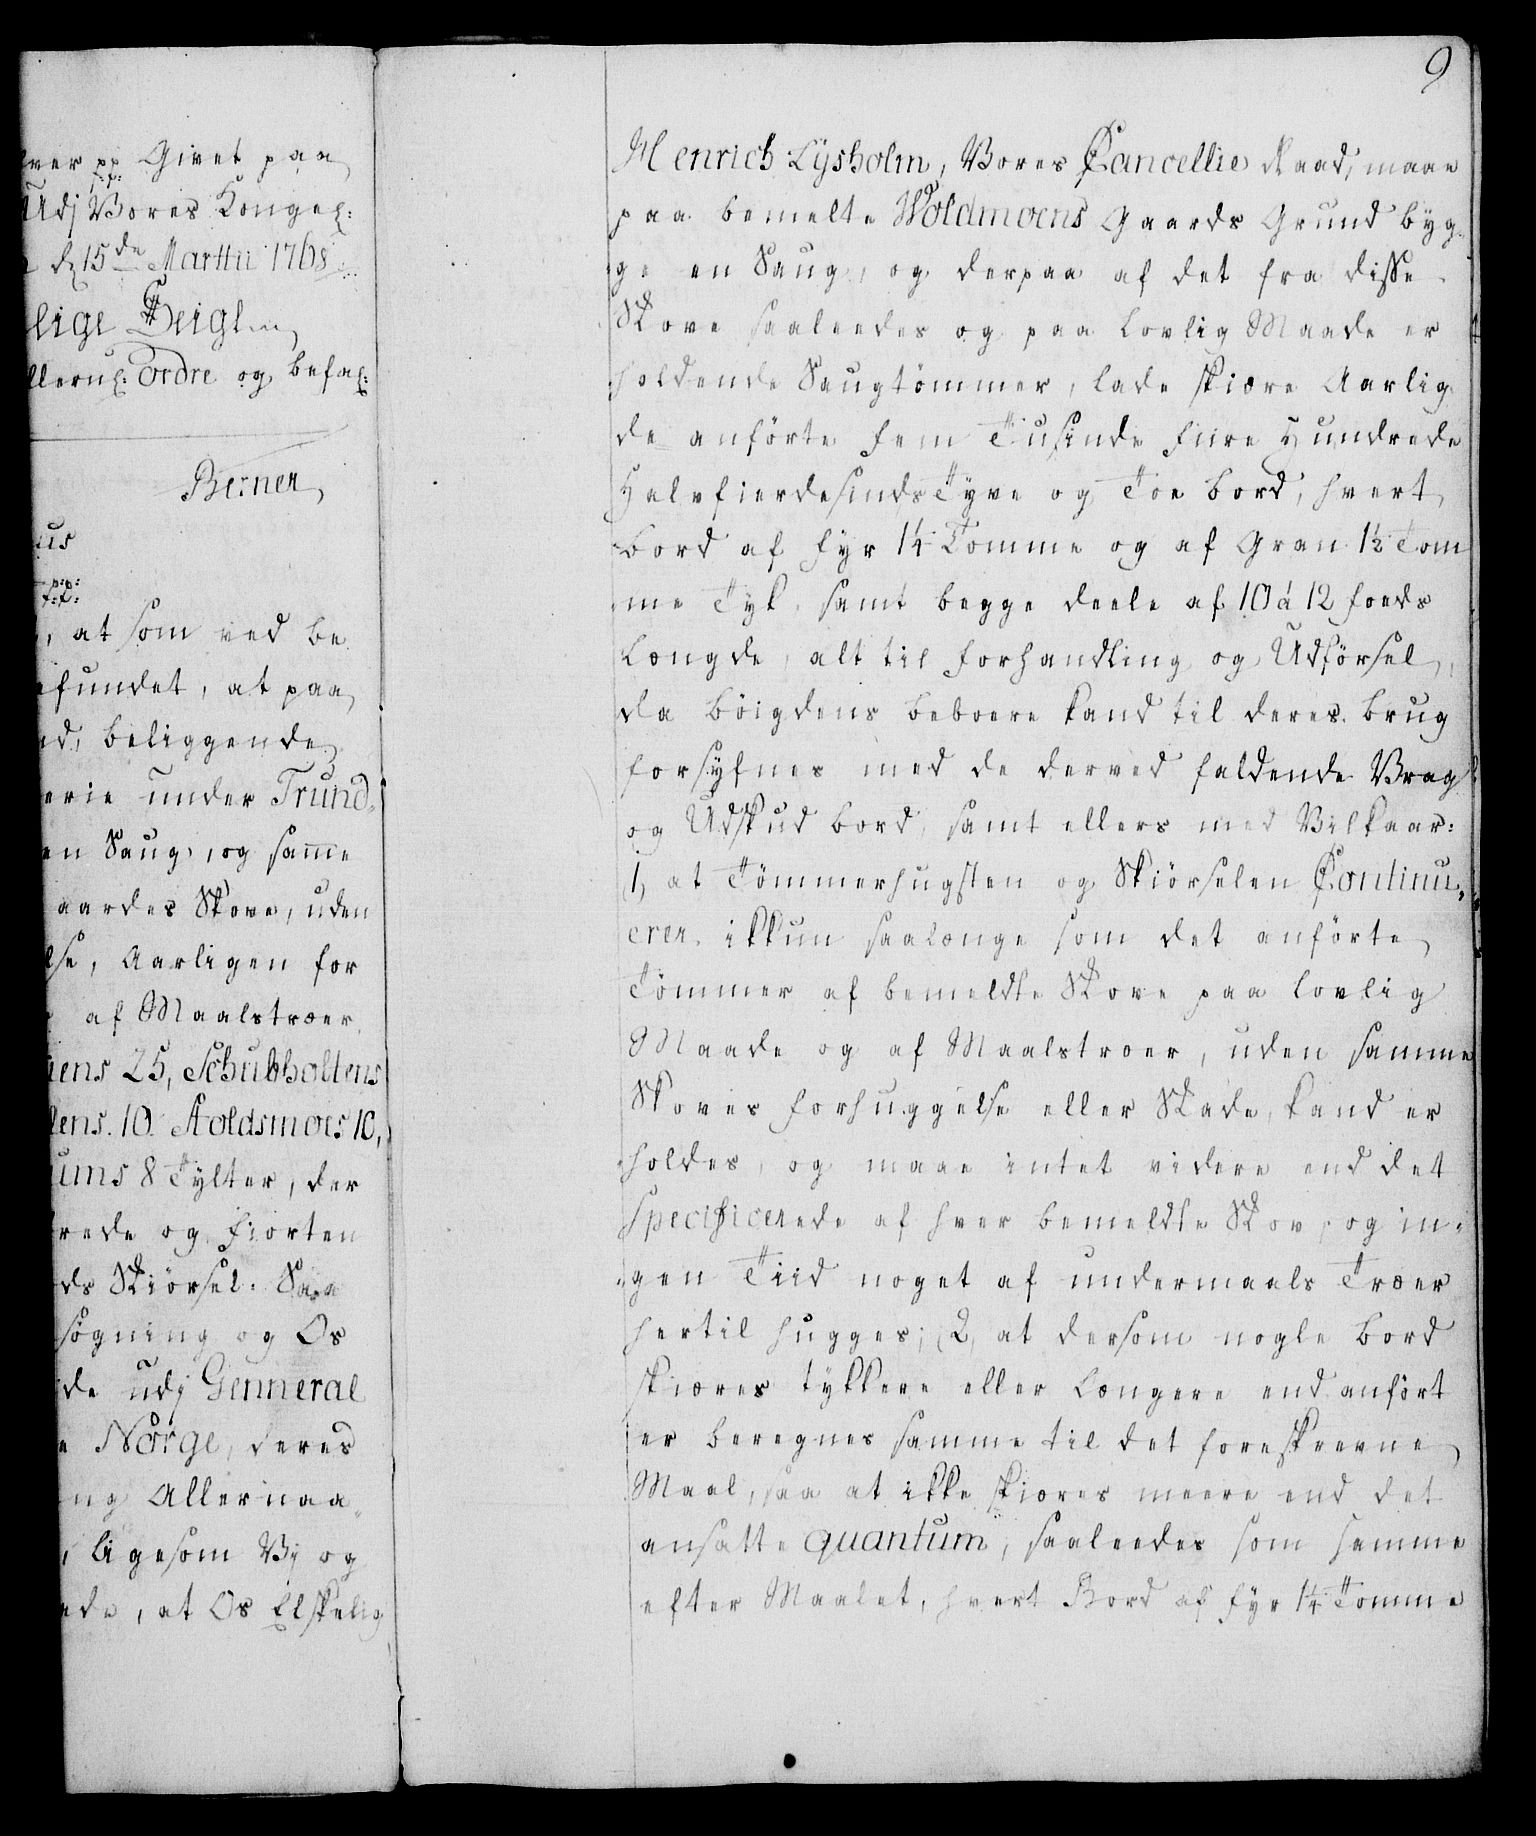 lver pp Givet paa
Udj Vores Kongel:
d. 15de Martii 1768.
lige Seigl.
llerul: Ordre og befal:
Berner
us
p:p:
, at som ved be
efundet, at paa
nd, beliggende
erie under Trund-
en Saug, og samme
aardes Skove, uden
lse, Aarligen for
af Maalstræer
iens 25, Schubholtens
lens. 10. Aoldsmoes 10,
ums 8 Tylter, der
rede og Fiorten
ds Skiörsel: Saa
sögning og Os
de udj Genneral
e Norge, deres
ng Allernaa-
, ligesom Vi og
ade, at Os Elskelig
9
Henrich Lÿsholm, Vores Cancellie Raad, maae
paa bemelte Woldmoens Gaards Grund byg-
ge en Saug, og derpaa af det fra disse
Skove saaleedes og paa Lovlig Maade er
holdende Saugtömmer, lade skiære Aarlig
de anförte Fem Tusinde Fiire Hundrede
Halvfierdesinds Tyve og Toe bord, hvert
bord af Fyr 1¼ Tomme og af Gran 1½ Tom
me Tyk, samt begge deele af 10 á 12 foeds
Længde, alt til Forhandling og Udförsel,
da Böigdens beboere kand til deres brug
forsyfnes med de derved faldende Vrag
og Udskud bord, samt ellers med Vilkaar:
1, at Tömmerhugsten og Skiörselen Continu-
erer ikkun saalænge som det anförte
Tömmer af bemeldte Skove paa lovlig
Maade og af Maalstræer, uden samme
Skoves forhuggelse eller Skade, kand er
holdes, og maae intet videre end det
Specificerede af hver bemeldte Skov, og in-
gen Tiid noget af undermaals Træer
hertil hugges; 2, at dersom nogle bord
skiæres tykkere eller Længere end anfört
er beregnes samme til det foreskrevne
Maal, saa at ikke skiæres meere end det
ansatte quantum, saaleedes som samme
efter Maalet, hvert Bord af Fyr 1¼ Tomme